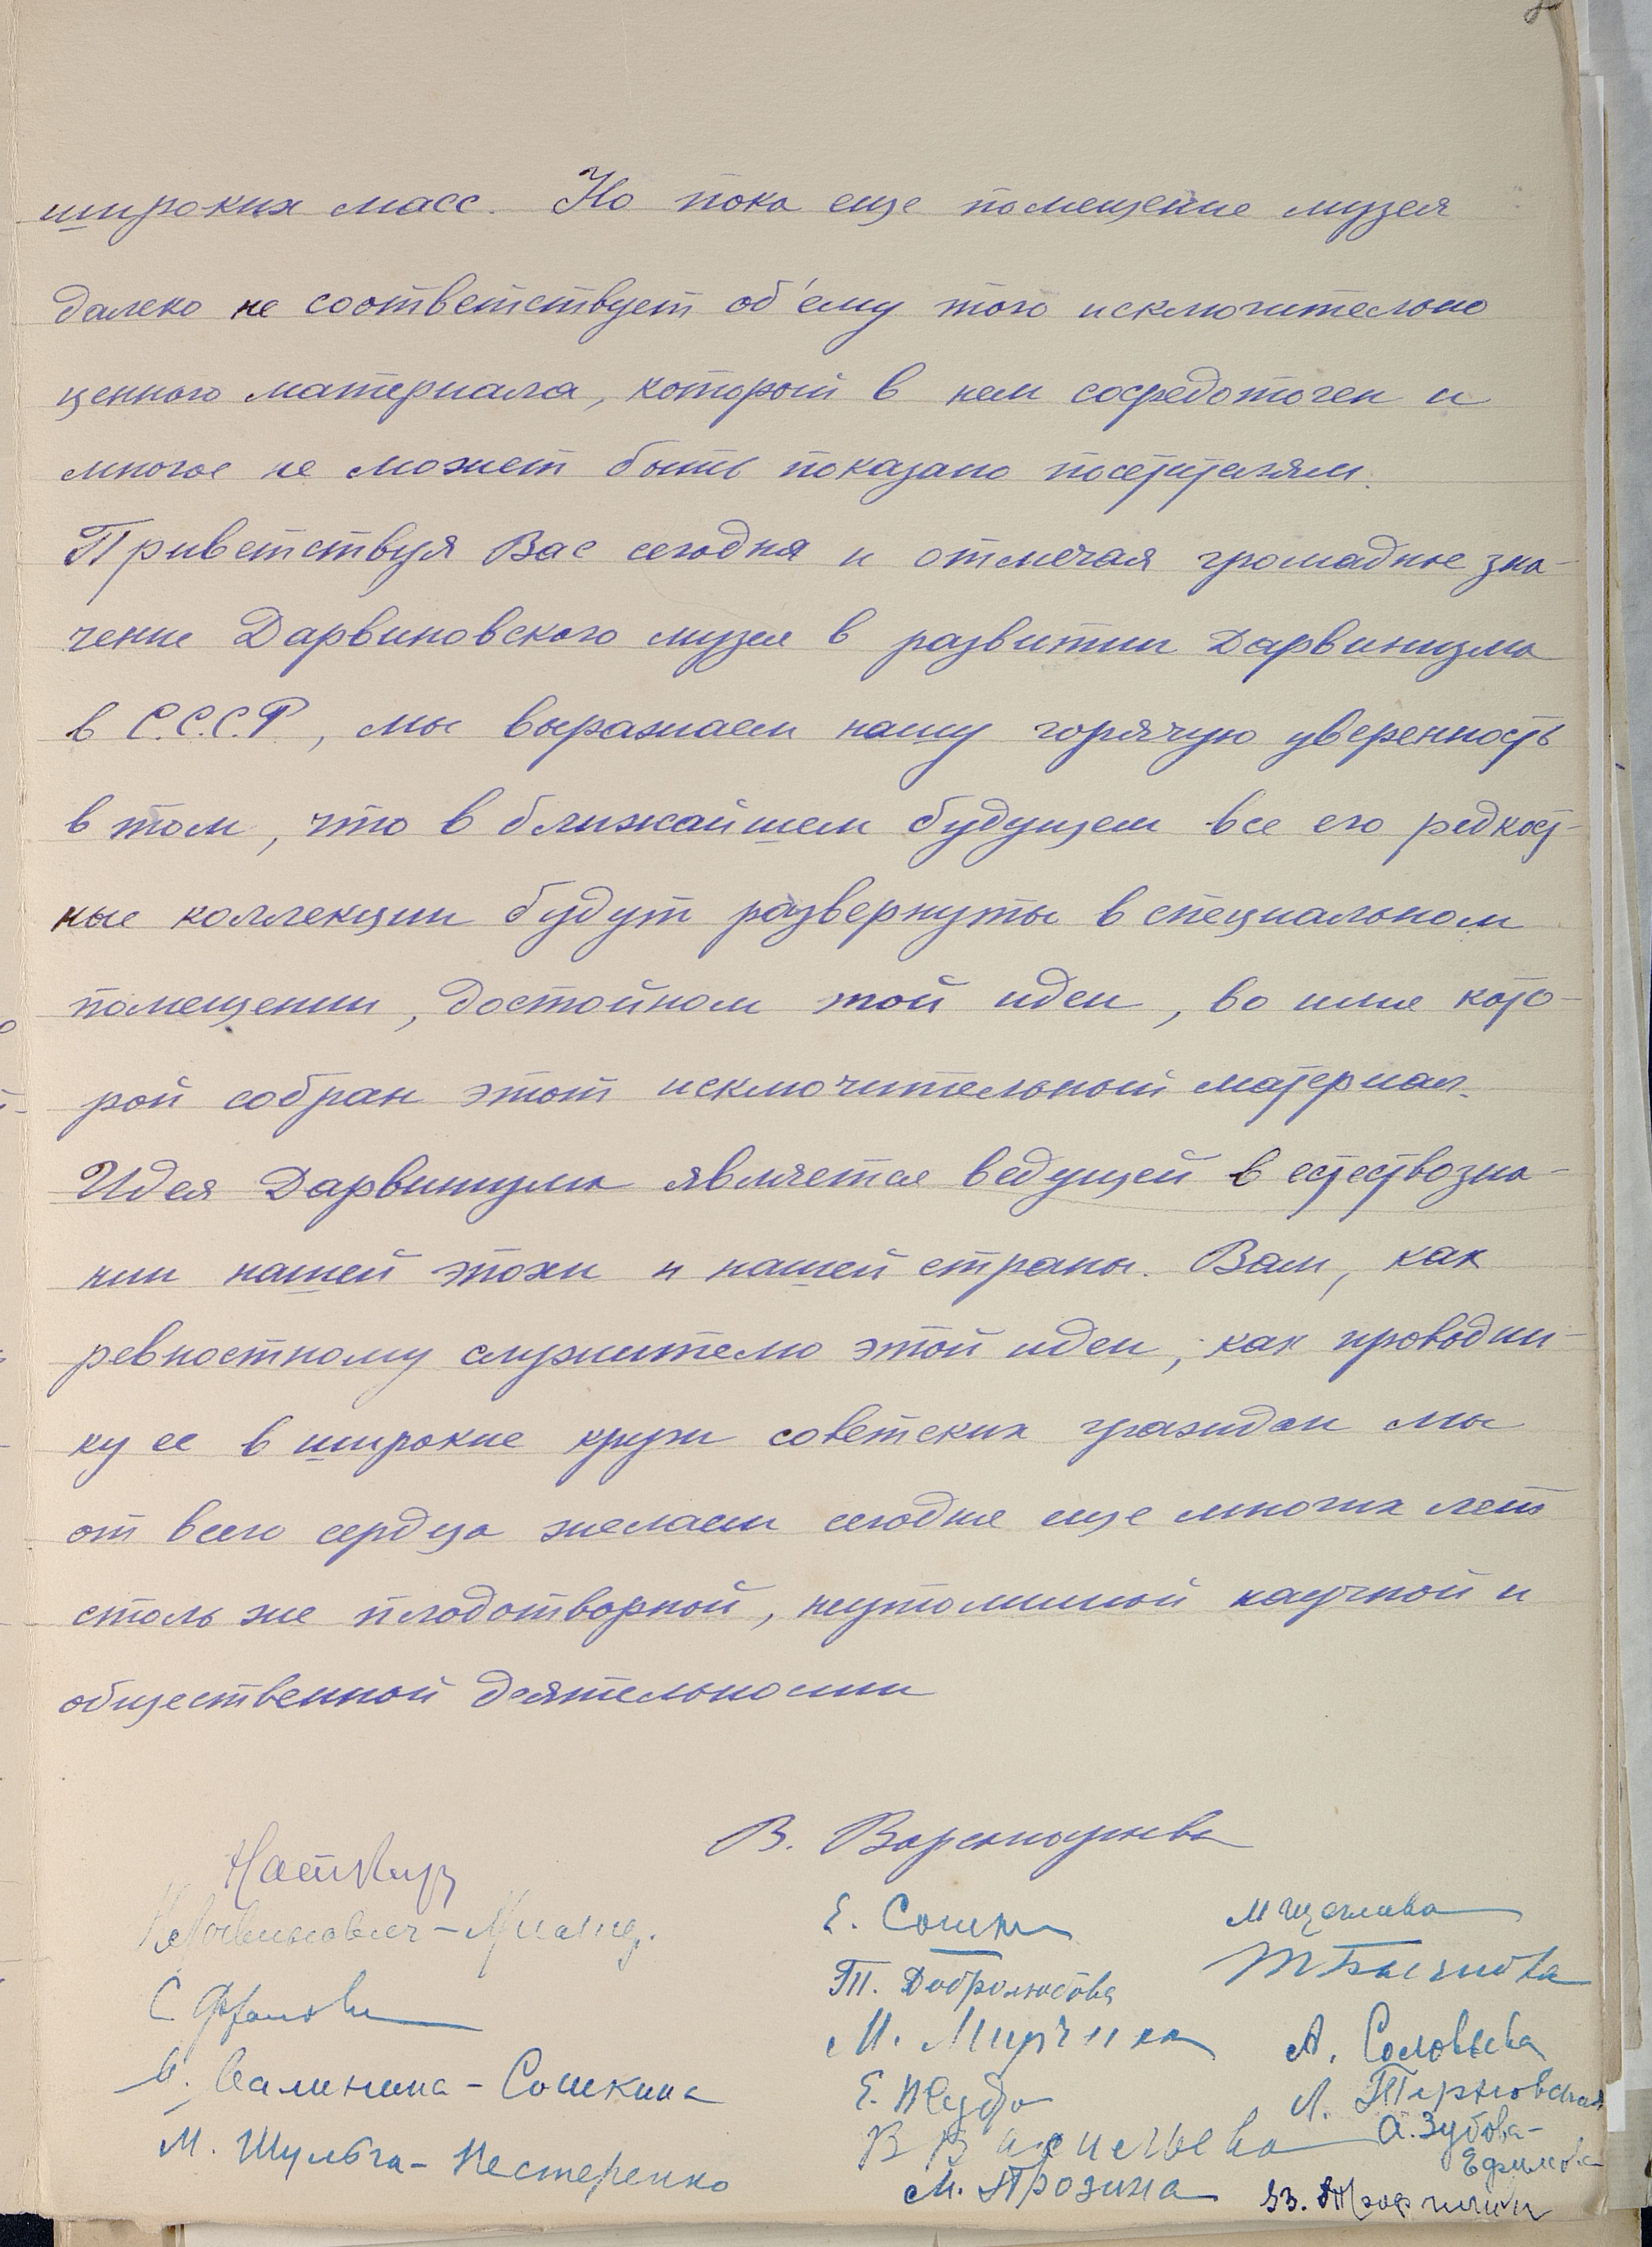 широких масс. Но пока еще помещение музея
далеко не соответствует об'ему того исключительно
ценного материала, который в нем сосредоточен и
многое не может быть показано посетителям.
Приветствуя Вас сегодня и отмечая громадное зна-
чение Дарвиновского музея в развитии Дарвинизма
в С.С.С.Р., мы выражаем нашу горячую уверенность
в том, что в ближайшем будущем все его редкост-
ные коллекции будут развернуты в специальном
помещении, достойном той идеи, во имя кото-
рой собран этот исключительный материал.
Идея Дарвинизма является ведущей в естествозна-
нии нашей эпохи и нашей страны. Вам, как
ревностному служителю этой идеи, как проводни-
ку ее в широкие круги советских граждан мы
от всего сердца желаем сегодня еще многих лет
столь же плодотворной, неутомимой научной и
общественной деятельности
В.
Е.
М Щеглива
Т. Добролюбова
М. Мирчинк
А. Соловьева
С
Е. Жудро
Л. Терновская
Калинина-Сошкина
В Васильева
А. Зубова-
Ефимова
М. Шульга-Нестеренко
М. Прозина